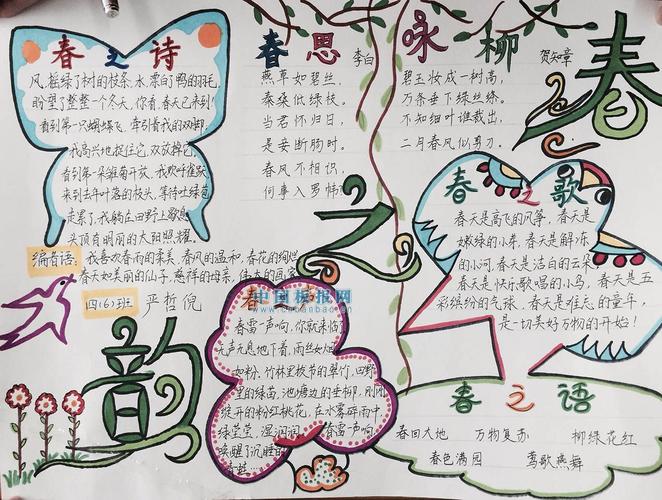 春之诗
风,摇绿了树的枝条,水,漂白了鸭的羽毛,
盼望了整整一个冬天,你看,春天已来到!
看到第一只蝴蝶飞,牵引着我的双脚,
我高兴地捉住它,又放掉它,
看到第一朵雏菊开放,我欢呼雀跃,
来到去年叶落的枝头,等待吐绿苞,
走累了,我躺在田野上歇息,
头顶有明丽的太阳照耀。
编者语:
我喜欢春雨的柔美、春风的温和、春花的绚烂
春天如美丽的仙子、慈祥的母亲、伟大的画家
四(6)班 严哲倪
春思 李白
燕草如碧丝,
秦桑低绿枝。
当君怀归日,
是妾断肠时。
春风不相识,
何事入罗帏?
咏柳 贺知章
碧玉妆成一树高,
万条垂下绿丝绦。
不知细叶谁裁出,
二月春风似剪刀。
春
之
韵
春之歌
春天是高飞的风筝,春天是
嫩绿的小草,春天是解冻
的小河,春天是洁白的云朵
春天是快乐歌唱的小鸟,春天是五
彩缤纷的气球,春天是难忘的童年,
是一切美好万物的开始!
春
中国板报网
www.cnbanbao.cn
春雷一声响,你就来临了
无声无息地下着,雨丝如烟
如粉,竹林里枝节的翠竹,田野
里的绿苗,池塘边的垂柳,刚刚
绽开的粉红桃花,在水雾碎雨中
绿莹莹,湿润润
春雷一声响,
唤醒了沉睡的
春之语
春回大地 万物复苏 柳绿花红
春色满园 莺歌燕舞